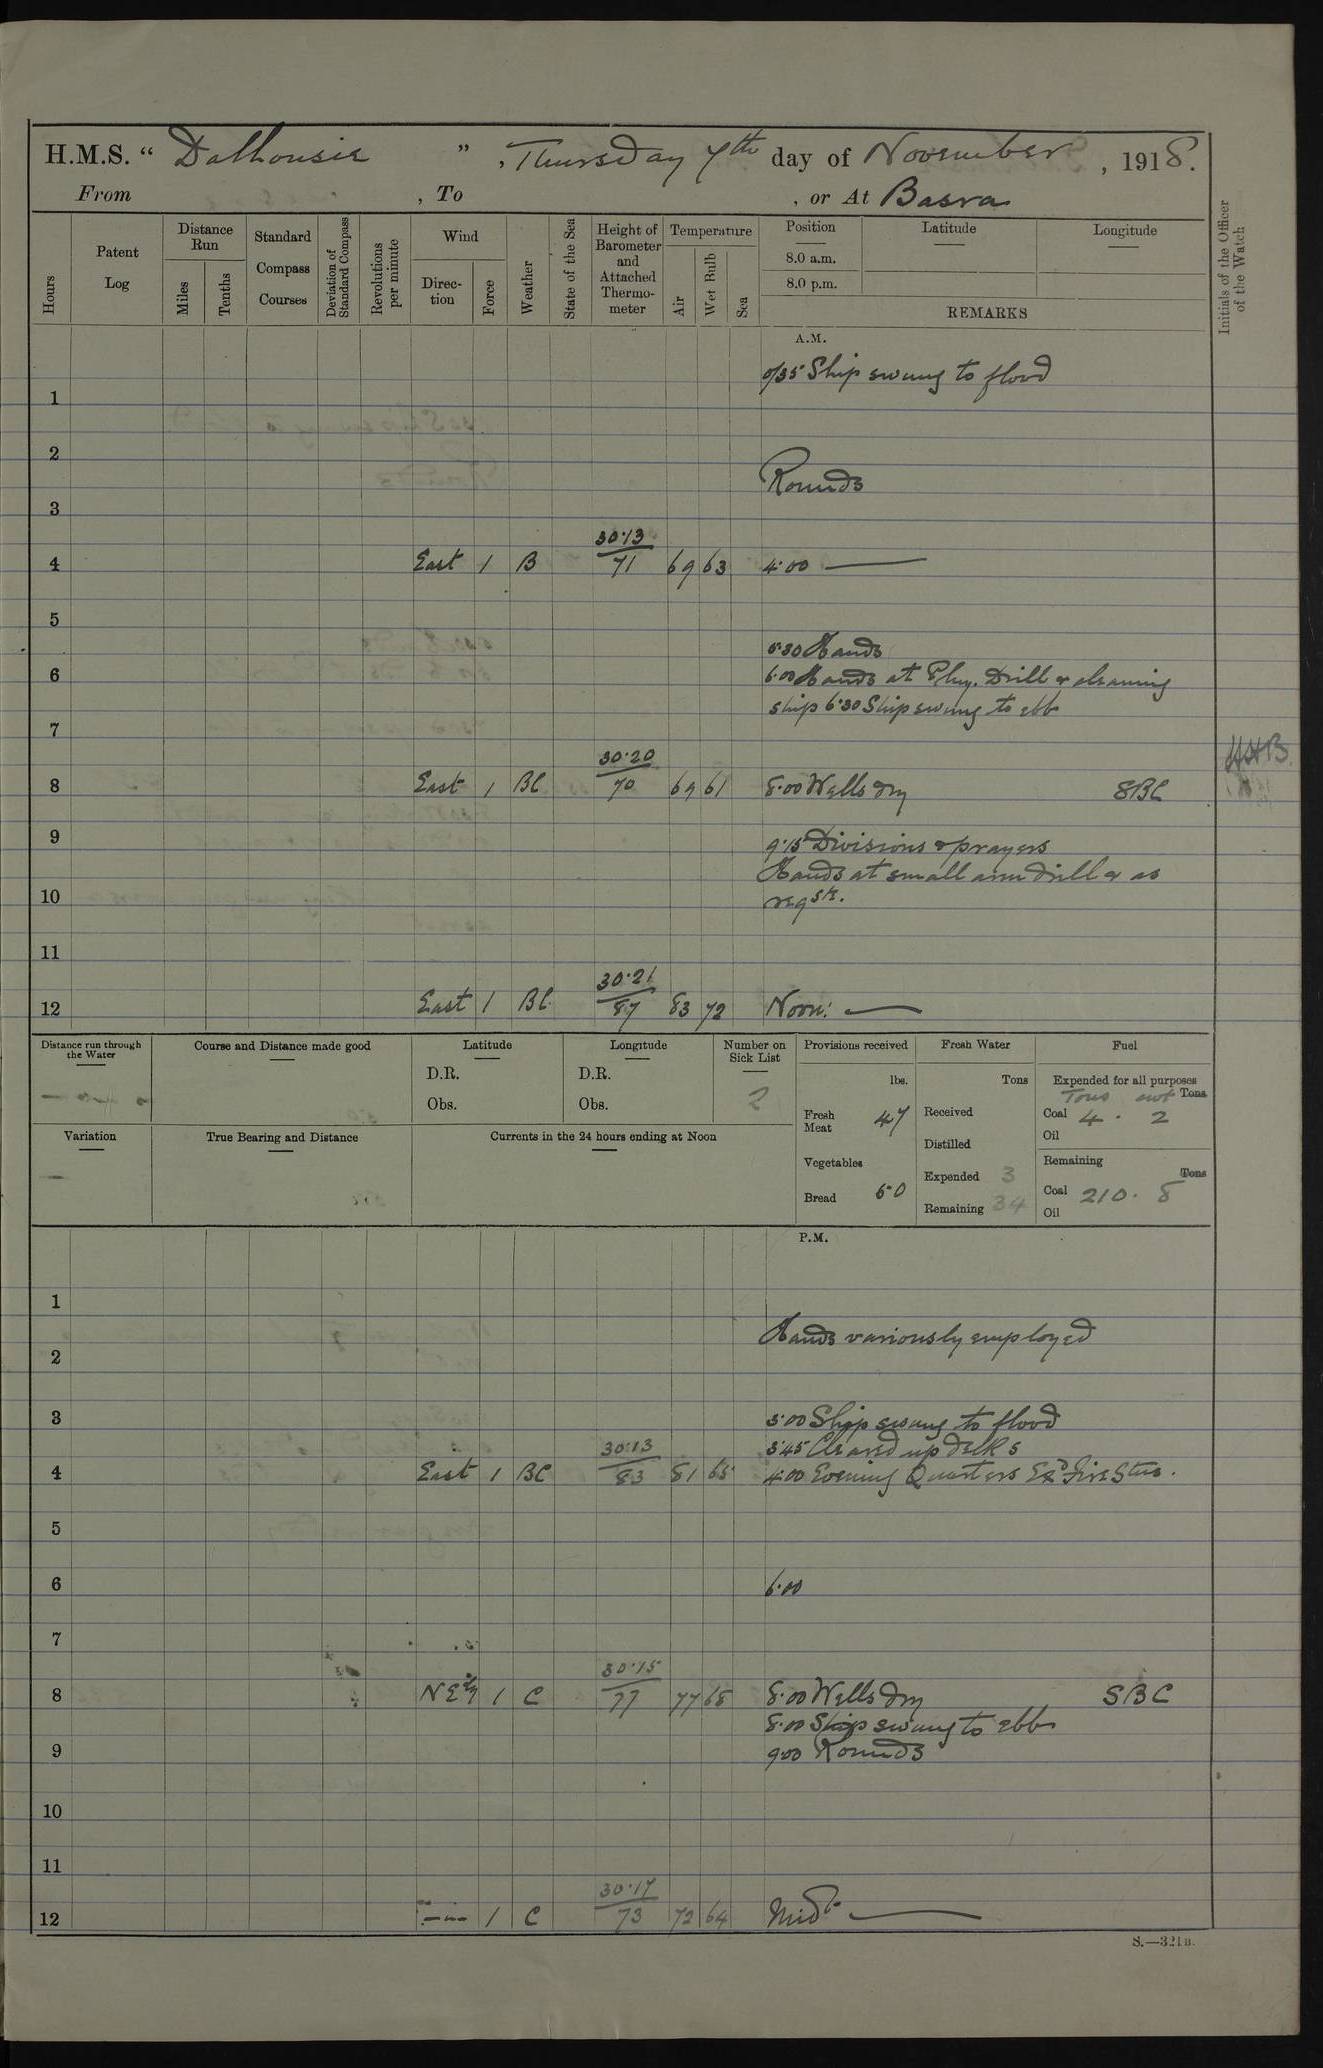 H.M.S. “ Dalhousie ” , Thursday 7th day of November , 1918.
From , To , or At Basra
Hours
Patent Log
Distance Run
Miles
Tenths
Standard Compass Courses
Deviation of Standard Compass
Revolutions per minute
Wind
Direction
Force
Weather
State of the Sea
Height of Barometer and Attached Thermometer
Temperature
Air
Wet Bulb
Sea
Position
8.0 a.m.
8.0 p.m.
Latitude
Longitude
REMARKS
Initials of the Officer of the Watch
A.M.
0/35 Ship swung to flood
1
2
Rounds
3
30.13
4 East 1 B 71 69 63 4.00
5
5.30 Hands
6 6.00 Hands at Phy. Drill & cleaning
ship 6.30 Ship swung to ebb
7
30.20
8 East 1 BC 70 69 61 8.00 Wells dry SBC
9 9.15 Divisions & prayers
Hands at small arm drill & as
10 reqste.
11
30.21
12 East 1 BC 87 83 72 Noon:
Distance run through the Water
Course and Distance made good
Latitude
D.R.
Obs.
Longitude
D.R.
Obs.
Number on Sick List
2
Provisions received
lbs.
Fresh Meat 47
Vegetables
Bread 50
Fresh Water
Tons
Received
Distilled
Expended 3
Remaining 34
Fuel
Expended for all purposes
Tons cwt Tons
Coal 4 . 2
Oil
Remaining
Tons
Coal 210 . 8
Oil
Variation
True Bearing and Distance
Currents in the 24 hours ending at Noon
P.M.
1
Hands variously employed
2
3 3.00 Ship swung to flood
30.13 3.45 Cleared up decks
4 East 1 BC 83 81 65 4.00 Evening Quarters Exd Fire Stns.
5
6 6.00
7
30.15
8 NEly 1 C 77 77 68 8.00 Wells dry SBC
8.00 Ship swung to ebb
9 9.00 Rounds
10
11
30.17
12 1 C 73 72 64 Midt
S.—321B.